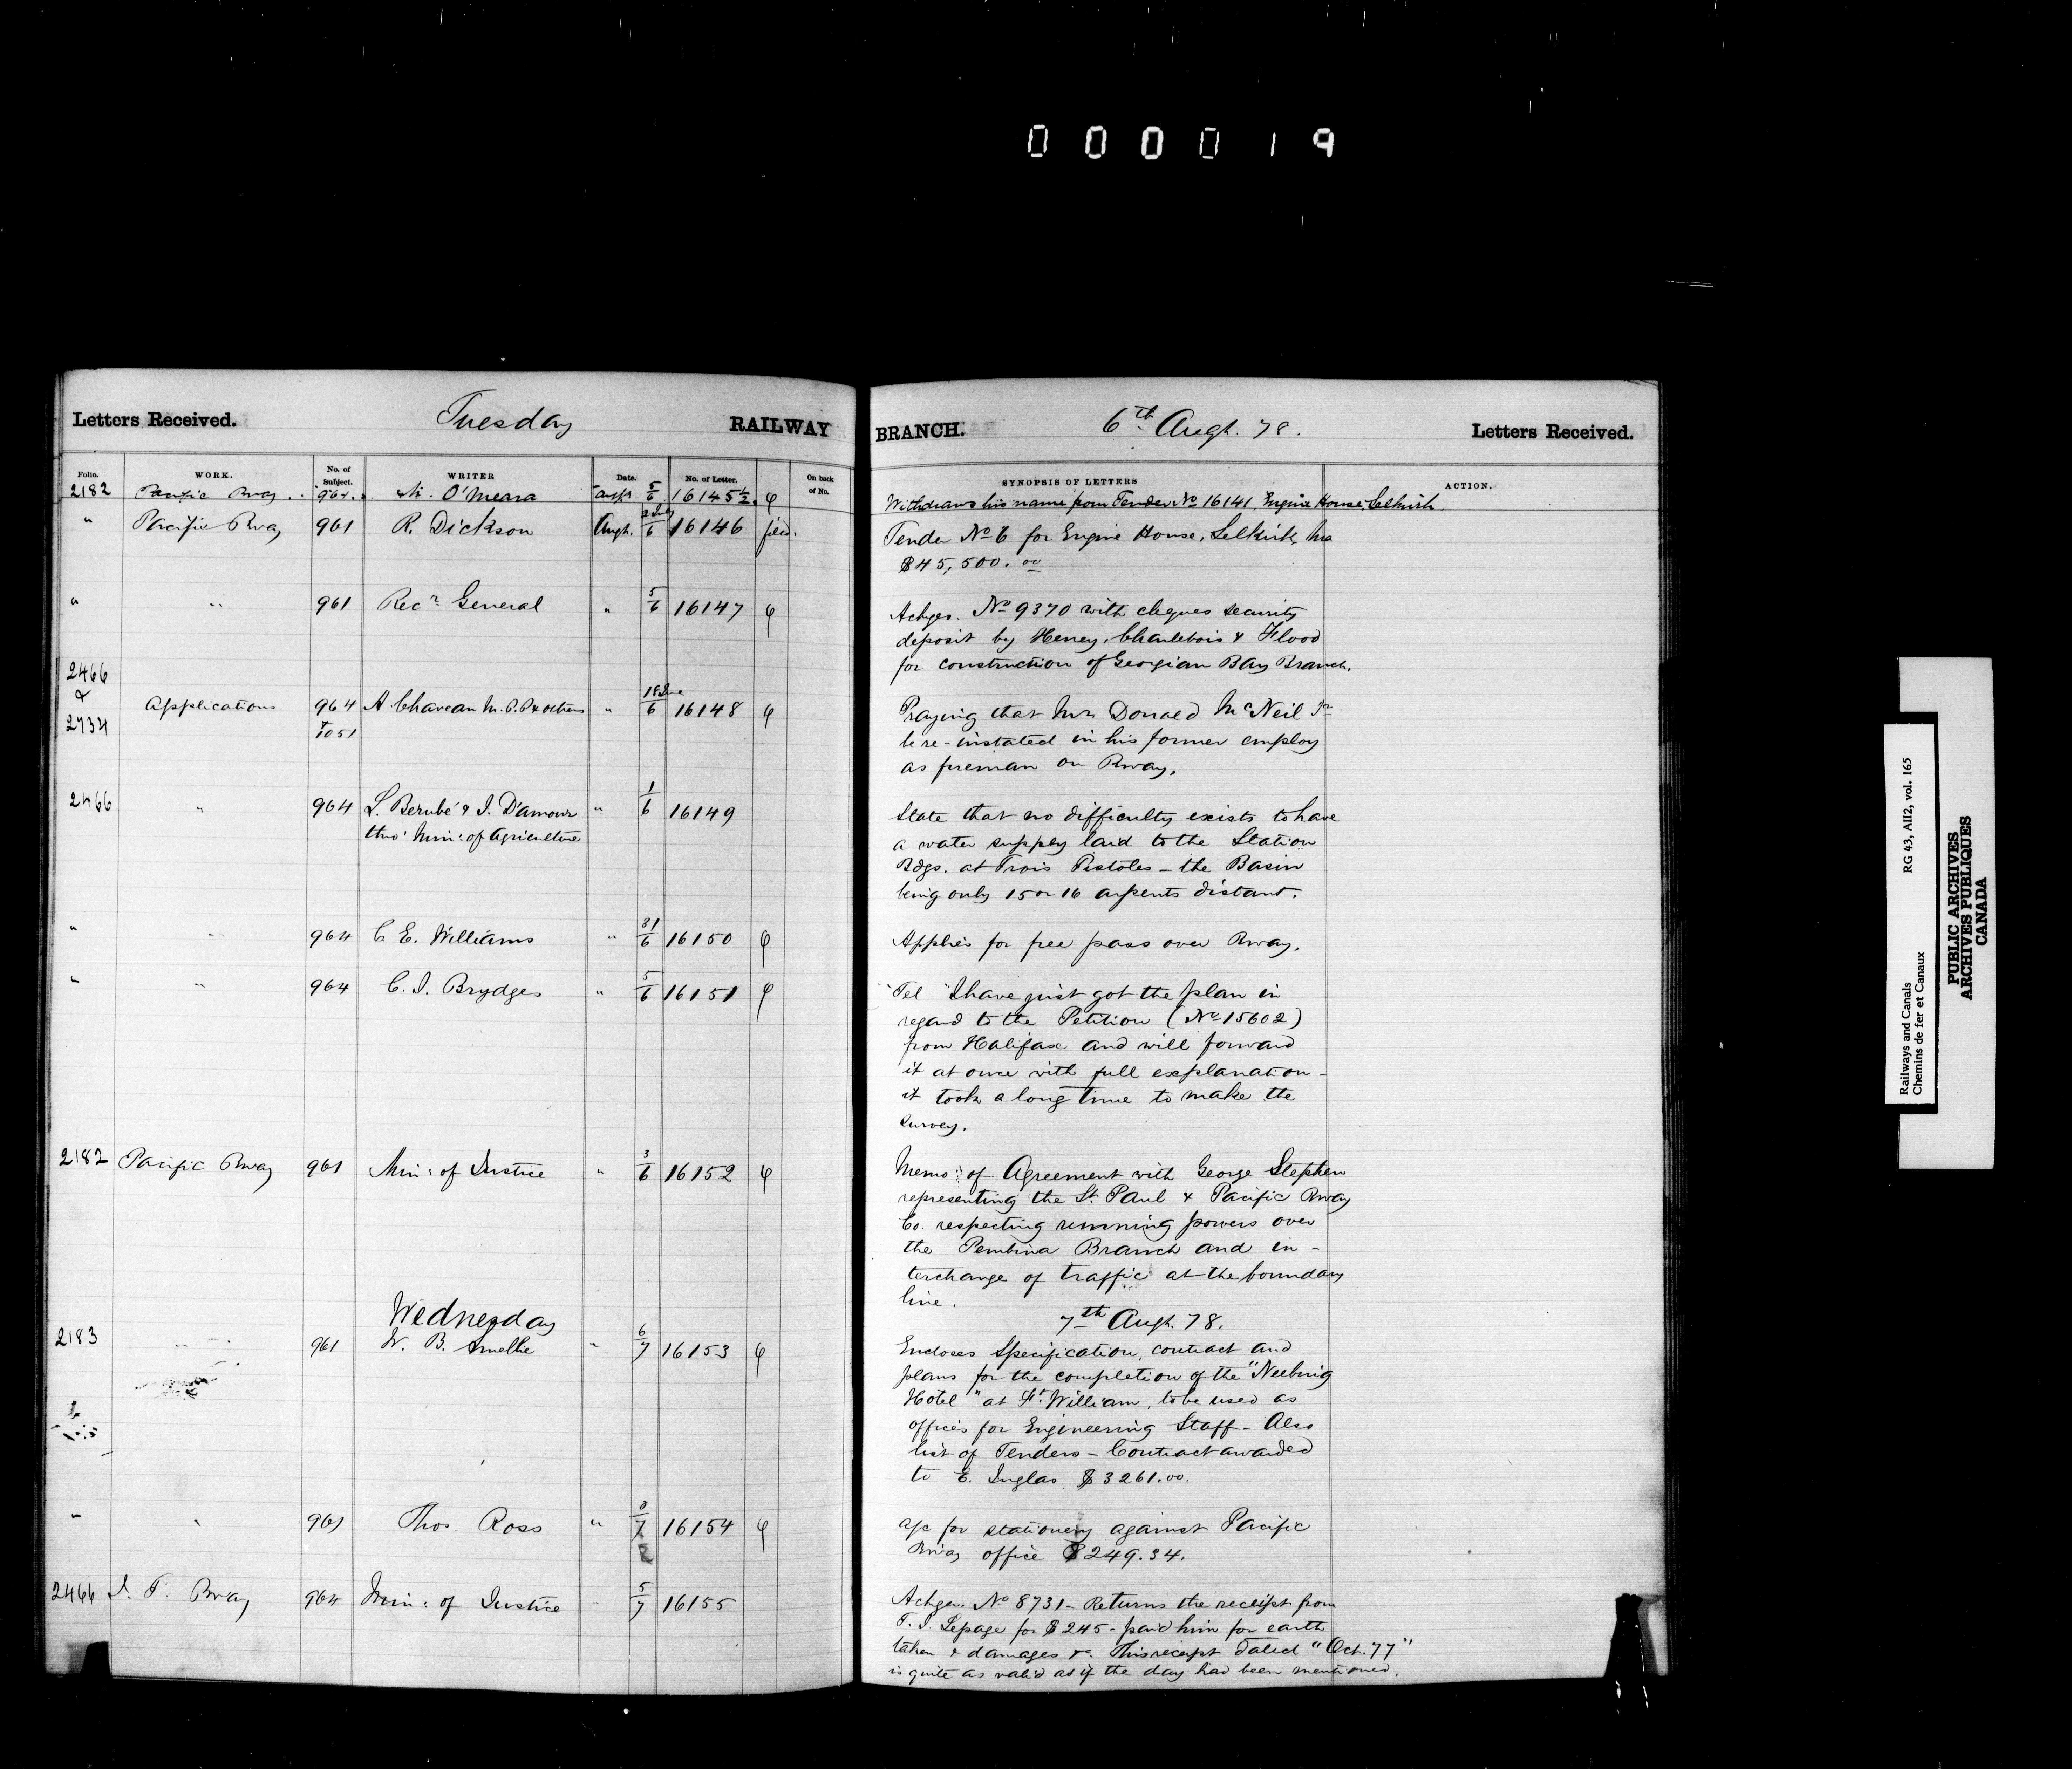 000019
Letters Received. Tuesday RAILWAY BRANCH. 6th Augt. 78. Letters Received.
Folio. WORK. No. of Subject. WRITER Date. No. of Letter. On back of No. SYNOPSIS OF LETTERS ACTION.
2182 Pacific Rway 961 O'Meara Augt 5/6 16145½ φ Withdraws his name from Tender No 16141, Engine House, Selkirk
" Pacific Rway 961 R. Dickson Augt. 2 July/6 16146 filed. Tender No 6 for Engine House, Selkirk,
$45,500.00
" " 961 Recr. General " 5/6 16147 φ Ackges. No 9370 with cheques security
deposit by Heney, Charlebois & Flood
for construction of Georgian Bay Branch.
2466 & 2734 Applications 964 & 1051 A Chaveau M.P.P & others " 18 June/6 16148 φ Praying that Mr. Donald McNeil Jr
be re-instated in his former employ
as fireman on Rway.
2466 " 964 L. Berubé & J. D'amour " 1/6 16149 State that no difficulty exists to have
thro' Min: of Agriculture
a water supply laid to the Station
Bdgs. at Trois Pistoles - the Basin
being only 15 or 16 arpents distant.
" " 964 C E. Williams " 31/6 16150 φ Applies for free pass over Rway.
" " 964 C. J. Brydges " 5/6 16151 φ Tel "I have just got the plan in
regard to the Petition (No 15602)
from Halifax and will forward
it at once with full explanation -
it took a long time to make the
survey.
2182 Pacific Rway 961 Min: of Justice " 3/6 16152 φ Memo: of Agreement with George Stephen
representing the St. Paul & Pacific Rway
Co. respecting running powers over
the Pembina Branch and in-
terchange of traffic at the boundary
line.
Wednesday 7th Augt. 78.
2183 " 961 W. B. Smellie " 6/7 16153 φ Encloses Specification, contract and
plans for the completion of the "Neebing
Hotel" at Ft. William, to be used as
offices for Engineering Staff - Also
list of Tenders - Contract awarded
to E. Inglas $3261.00.
" " 961 Thos Ross " 16154 φ a/c for stationery against Pacific
Rway office $249.34.
2466 I. P. Rway 964 Min: of Justice " 5/7 16155 Ackges. No 8731 - Returns the receipt from
T. J. Lepage for $245 - paid him for earth
taken & damages &c. This receipt dated "Oct. 77"
is quite as valid as if the day had been mentioned.
Railways and Canals RG 43, AII2, vol. 165
Chemins de fer et Canaux
PUBLIC ARCHIVES
ARCHIVES PUBLIQUES
CANADA